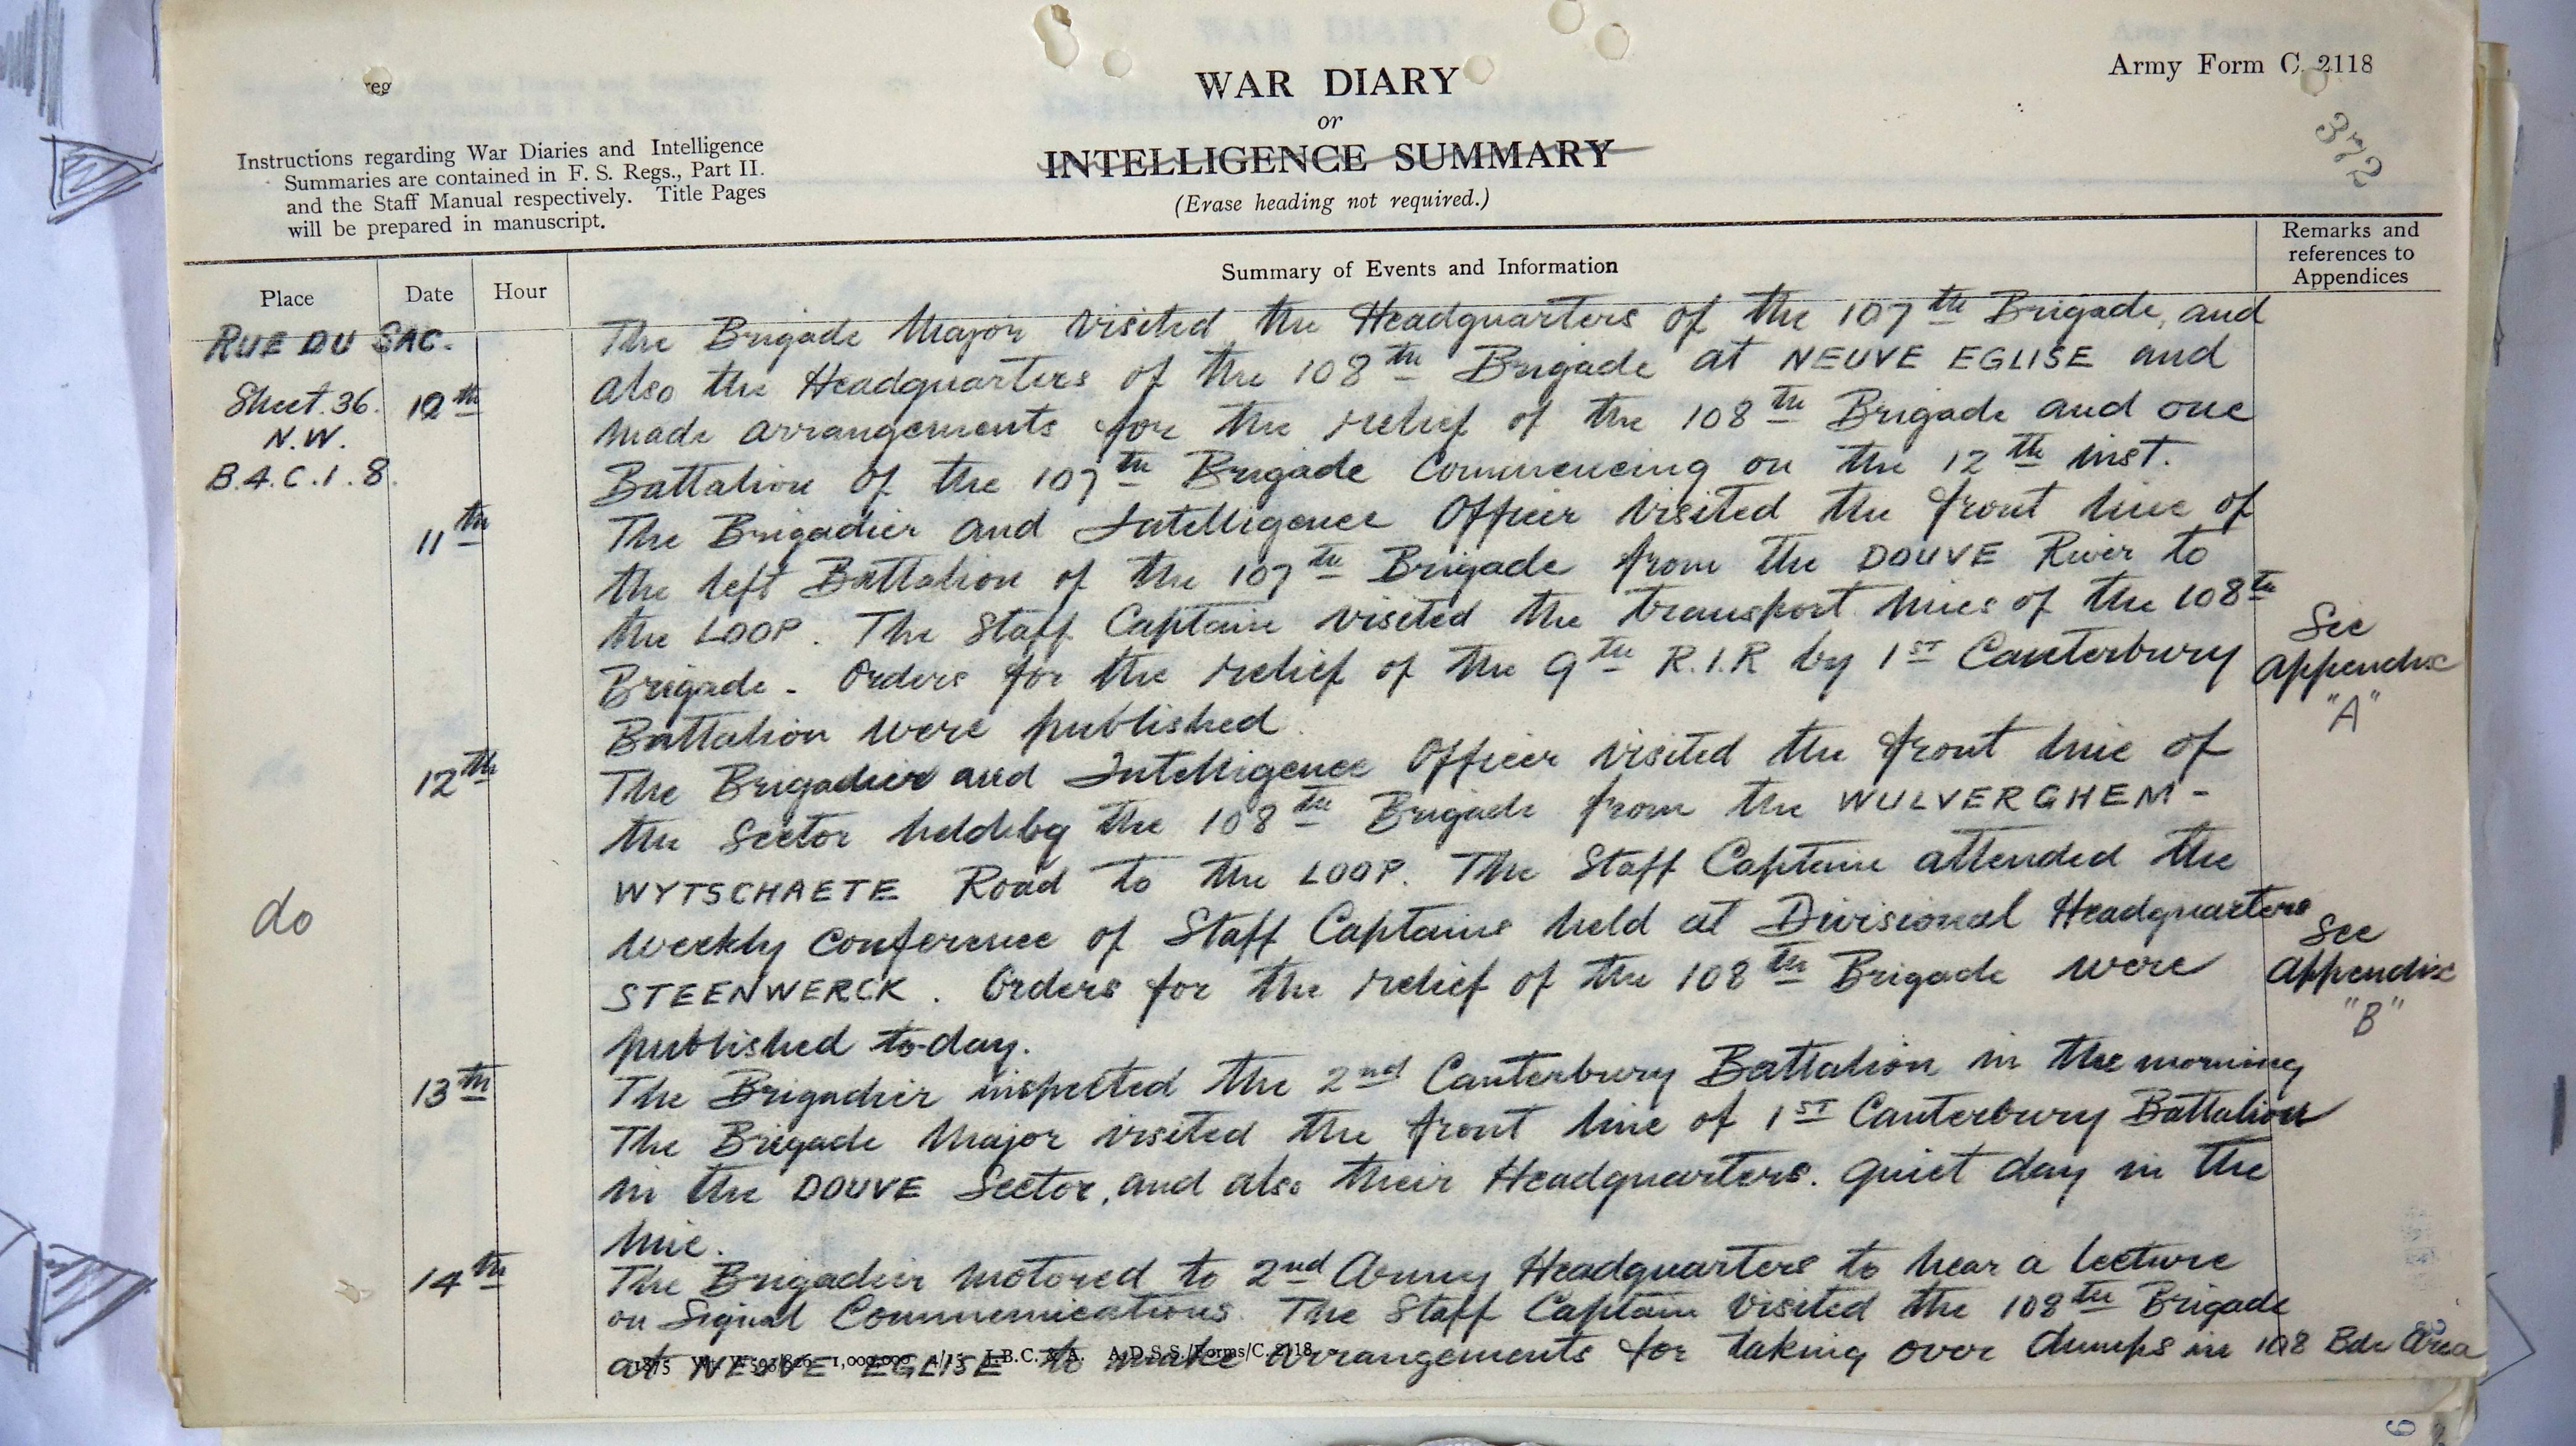 Army Form C. 2118
WAR DIARY
or
INTELLIGENCE SUMMARY
(Erase heading not required.)
372
reg
Instructions regarding War Diaries and Intelligence
Summaries are contained in F. S. Regs., Part II.
and the Staff Manual respectively. Title Pages
will be prepared in manuscript.
Place
Date
Hour
Summary of Events and Information
Remarks and
references to
Appendices
RUE DU SAC.
Sheet. 36.
N.W.
B.4.C.1.8.
10th
The Brigade Major visited the Headquarters of the 107th Brigade, and
also the Headquarters of the 108th Brigade at NEUVE EGLISE and
made arrangements for the relief of the 108th Brigade and one
Battalion of the 107th Brigade commencing on the 12th inst.
11th
The Brigadier and Intelligence Officer visited the front line of
the left Battalion of the 107th Brigade from the DOUVE River to
the LOOP. The Staff Captain visited the transport lines of the 108th
Brigade. Orders for the relief of the 9th R.I.R by 1ST Canterbury
Battalion were published.
See
appendix
"A"
12th
The Brigadier and Intelligence Officer visited the front line of
the Sector held by the 108th Brigade from the WULVERGHEM -
WYTSCHAETE Road to the LOOP. The Staff Captain attended the
weekly conference of Staff Captains held at Divisional Headquarters
STEENWERCK. Orders for the relief of the 108th Brigade were
published to-day.
do
See
appendix
"B"
13th
The Brigadier inspected the 2nd Canterbury Battalion in the morning
The Brigade Major visited the front line of 1ST Canterbury Battalion
in the DOUVE Sector, and also their Headquarters. Quiet day in the
line.
14th
The Brigadier motored to 2nd Army Headquarters to hear a lecture
on Signal Communications. The Staff Captain visited the 108th Brigade
at NEUVE EGLISE to make arrangements for taking over dumps in 108 Bde Area
1875 Wt. W593/826 1,000,000 4/15 J.B.C. & A. A.D.S.S./Forms/C. 2118.